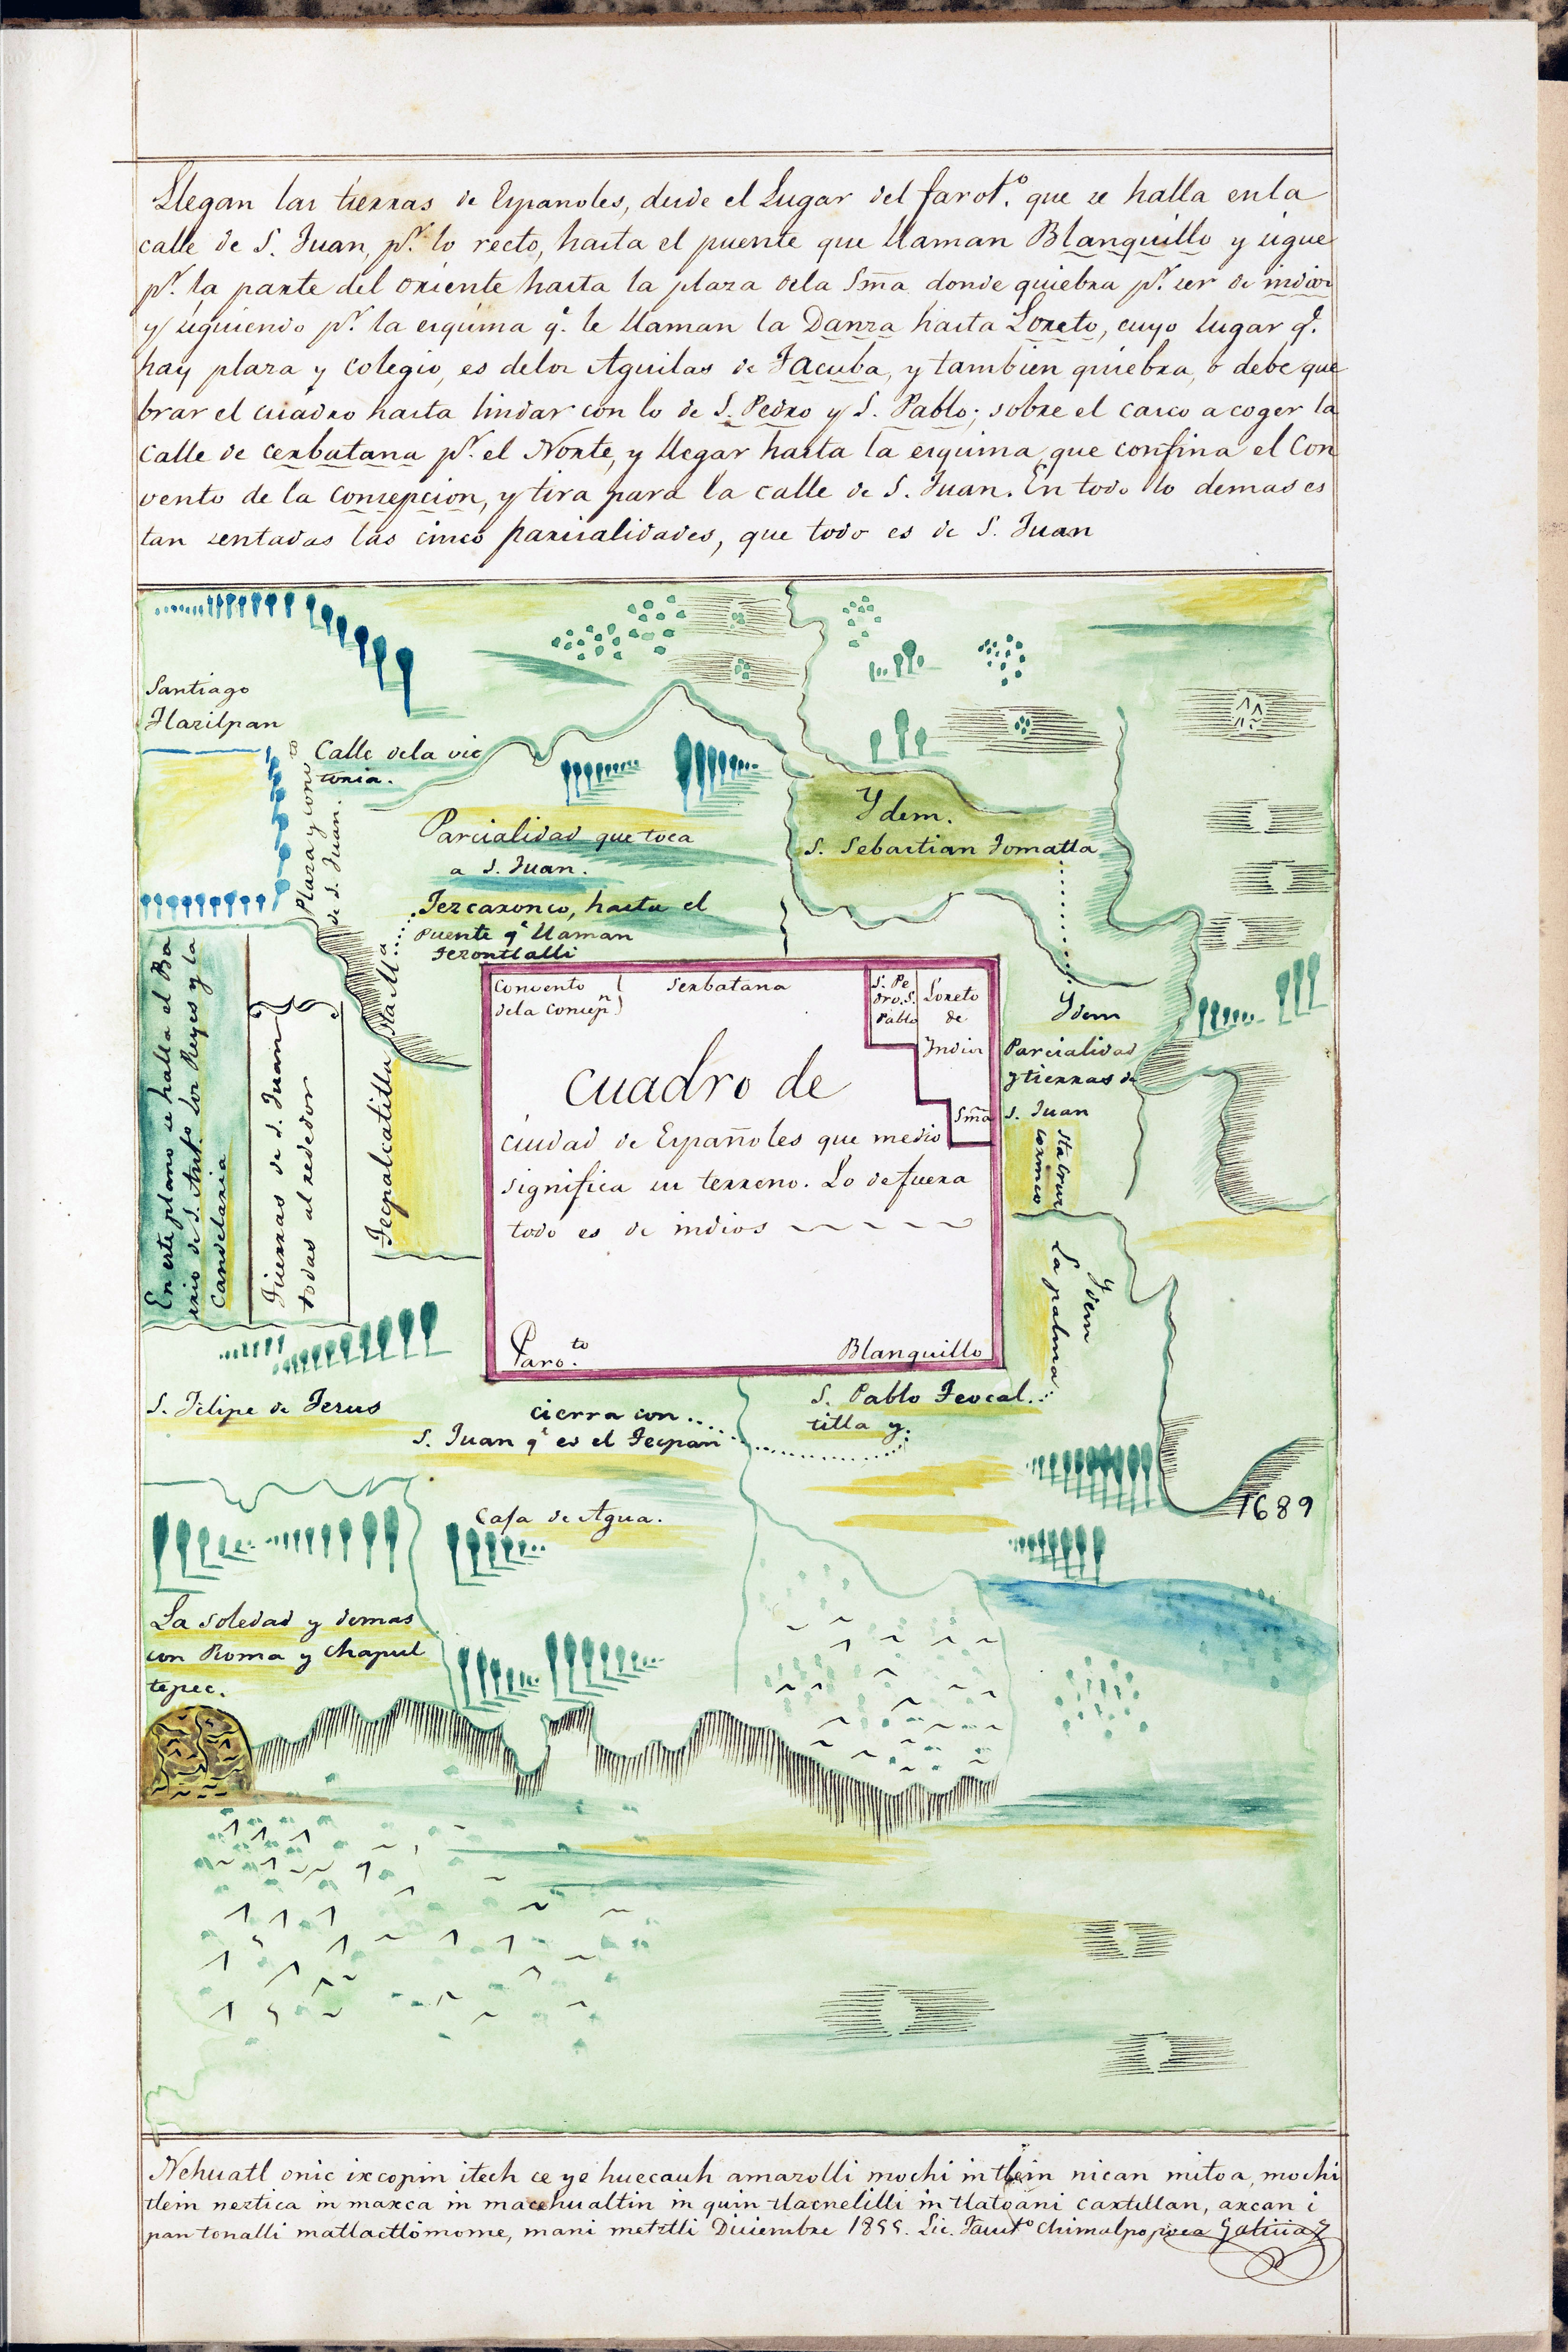 Llegan las tierras de Españoles, desde el Lugar del Parot.º que se halla en la
calle de S. Juan, pʳ. lo recto, hasta el puente que llaman Blanquillo y sigue
pʳ. la parte del oriente hasta la plaza dela Sm̃a donde quiebra pʳ. ser de indios
y siguiendo pʳ. la esquina q.ᵉ le llaman la Danza hasta Loreto, cuyo lugar q.ᵉ
hay plaza y colegio, es delos Aguilas de Tacuba, y tambien quiebra, o debe que
brar el cuadro hasta lindar con lo de S. Pedro y S. Pablo; sobre el casco a coger la
calle de cerbatana pʳ. el Norte, y llegar hasta la esquina que confina el Con
vento de la Consepcion, y tira para la calle de S. Juan. En todo lo demas es
tan sentadas las cinco parcialidades, que todo es de S. Juan
Santiago
Tlazilpan
Calle dela vic
toria.
Plaza y convᵗᵒ
de S. Juan.
Parcialidad que toca
a S. Juan.
Tezcazonco, hasta el
puente q.ᵉ llaman
Tezontlalli
Ydem.
S. Sebastian Tomatla
En este plano se halla el Ba
rrio de S. Antº los Reyes y la
Candelaria
Tierras de S. Juan
todas al rededor
Tecpalcatitlan Sta Mª
Convento
dela Consepⁿ
Serbatana
S. Pe
dro. S.
Pablo
Loreto
de
Indios
Sm̃a
cuadro de
ciudad de Españoles que medio
significa su terreno. Lo de fuera
todo es de indios
Paro.ᵗᵒ
Blanquillo
Ydem
Parcialidad
y tierras de
S. Juan
Sta Cruz
cozmco
Ydem
La palma
S. Felipe de Jesus
cierra con
S. Juan q.ᵉ es el Tecpan
S. Pablo Teocal
titla y
Casa de Agua.
1689
La soledad y demas
con Roma y Chapul
tepec.
Nehuatl onic ixcopin itech ce ye huecauh amazolli mochi in tlein nican mitoa, mochi
tlein neztica in maxca in macehualtin in quin tlacnelilli in tlatoani Caxtillan, axcan i
pan tonalli matlactlomome, mani metztli Diciembre 1855. Lic. Faustº Chimalpopoca Galicia